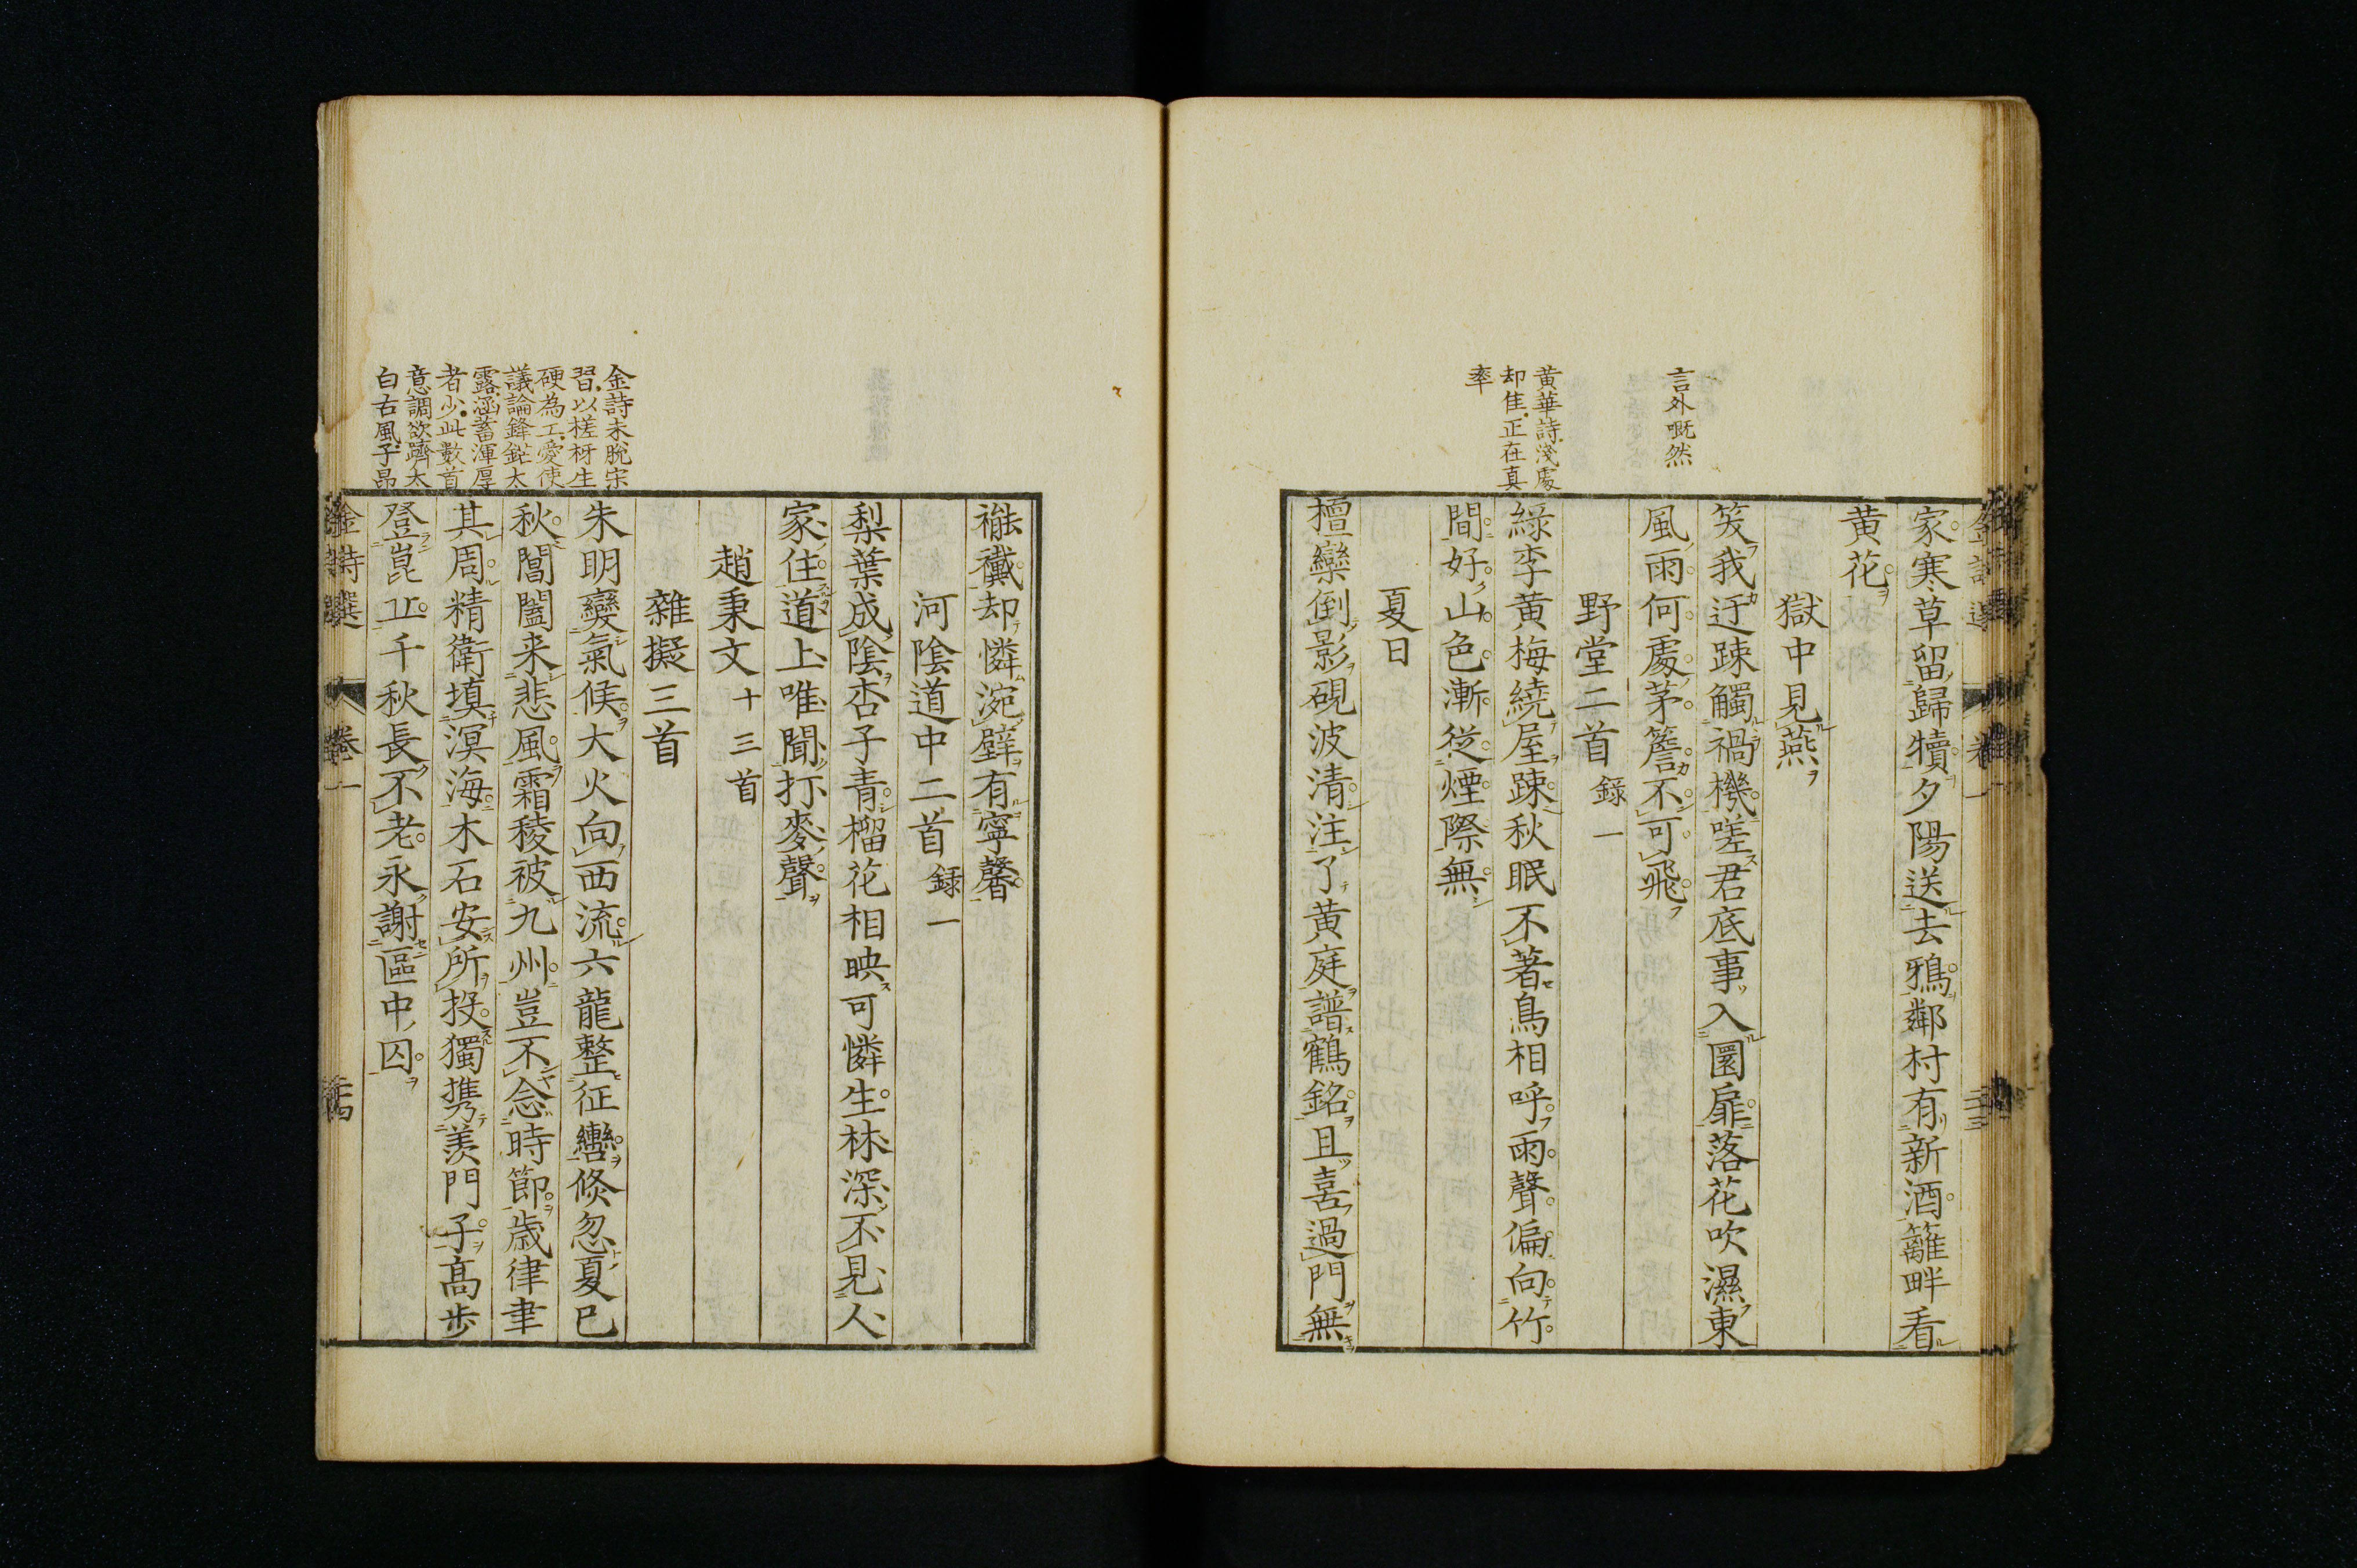 言外嘅然
黄華詩淺處
却佳正在真
率
家寒草留歸犢夕陽送去鴉鄰村有新酒籬畔看
黄花
獄中見燕
笑我迂踈觸禍機嗟君底事入圜扉落花吹濕東
風雨何處茅簷不可飛
野堂二首 錄一
綠李黄梅繞屋踈秋眠不著鳥相呼雨聲偏向竹
間好山色漸從煙際無
夏日
檀欒倒影硯波清注了黄庭譜鶴銘且喜過門無
金詩未脫宋
習以槎枒生
硬為工愛使
議論鋒鋩太
露涵蓄渾厚
者少此數首
意調欲躋太
白古風子昂
褦襶却憐涴壁有寧馨
河陰道中二首 録一
梨葉成陰杏子青榴花相映可憐生林深不見人
家住道上唯聞打麥聲
趙秉文 十三首
雜擬三首
朱明變氣候大火向西流六龍整征轡倐忽夏已
秋閶闔来悲風霜稜被九州豈不念時節歳律聿
其周精衛填溟海木石安所投獨携羨門子高步
登崑止千秋長不老永謝區中囚
金詩選 卷一